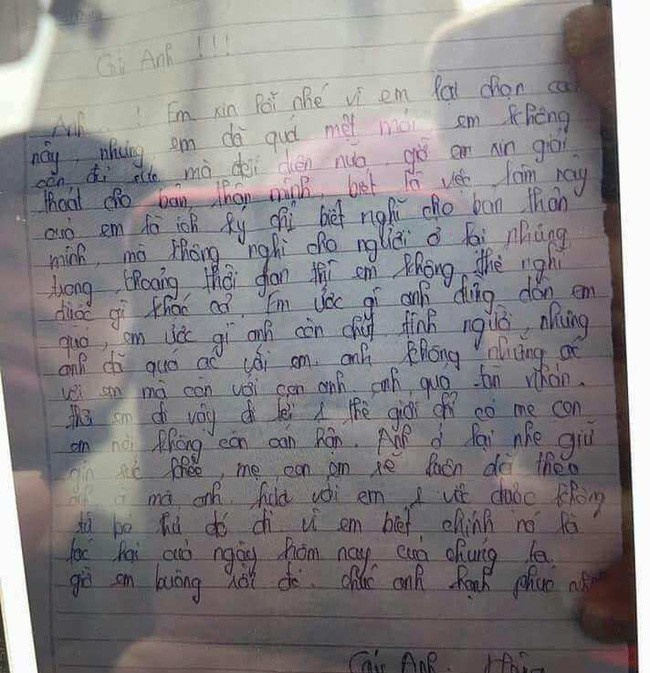 Gửi Anh !!!
Anh....! Em xin lỗi nhé vì em lại chọn
này, nhưng em đã quá mệt mỏi em không
mà đối diện nữa, giờ em xin giải
thoát cho bản thân mình, biết là việc làm này
quá em là ích kỷ chỉ biết nghĩ cho bản thân
mình, mà không nghĩ cho người ở lại nhưng
trong khoảng thời gian thì em không thể nghĩ
được gì khác cả. Em ước gì anh đừng dồn em
quá, em ước gì anh còn chút tình người, nhưng
anh đã quá ác với em. anh không những ác
với em mà còn với con anh. anh quá tàn nhẫn.
thôi em đi vậy đi tới 1 thế giới chỉ có mẹ con
em nơi không còn oán hận. Anh ở lại nhé giữ
gìn sức khỏe, mẹ con em sẽ luôn dõi theo
mà anh. hứa với em 1 việc được không
từ bỏ đó đi vì em biết chính nó là
tác hại của ngày hôm nay của chúng ta
giờ em buông rồi đó. chúc anh hạnh phúc
Gửi Anh.